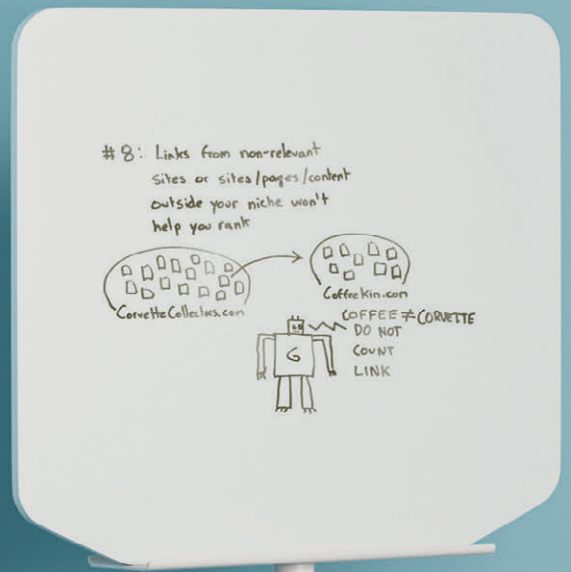 #8: Links from non-relevant
sites or sites/pages/content
outside your niche won't
help you rank
CorvetteCollectors.com
CoffeeKin.com
COFFEE ≠ CORVETTE
DO NOT
COUNT
LINK
G